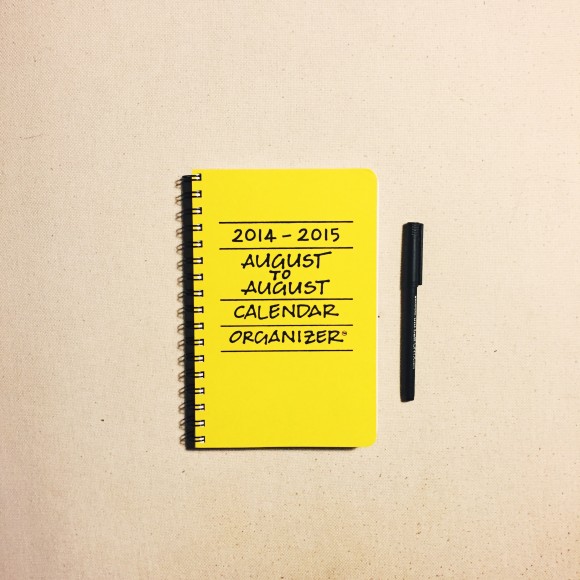 2014 - 2015
AUGUST
TO
AUGUST
CALENDAR
ORGANIZER